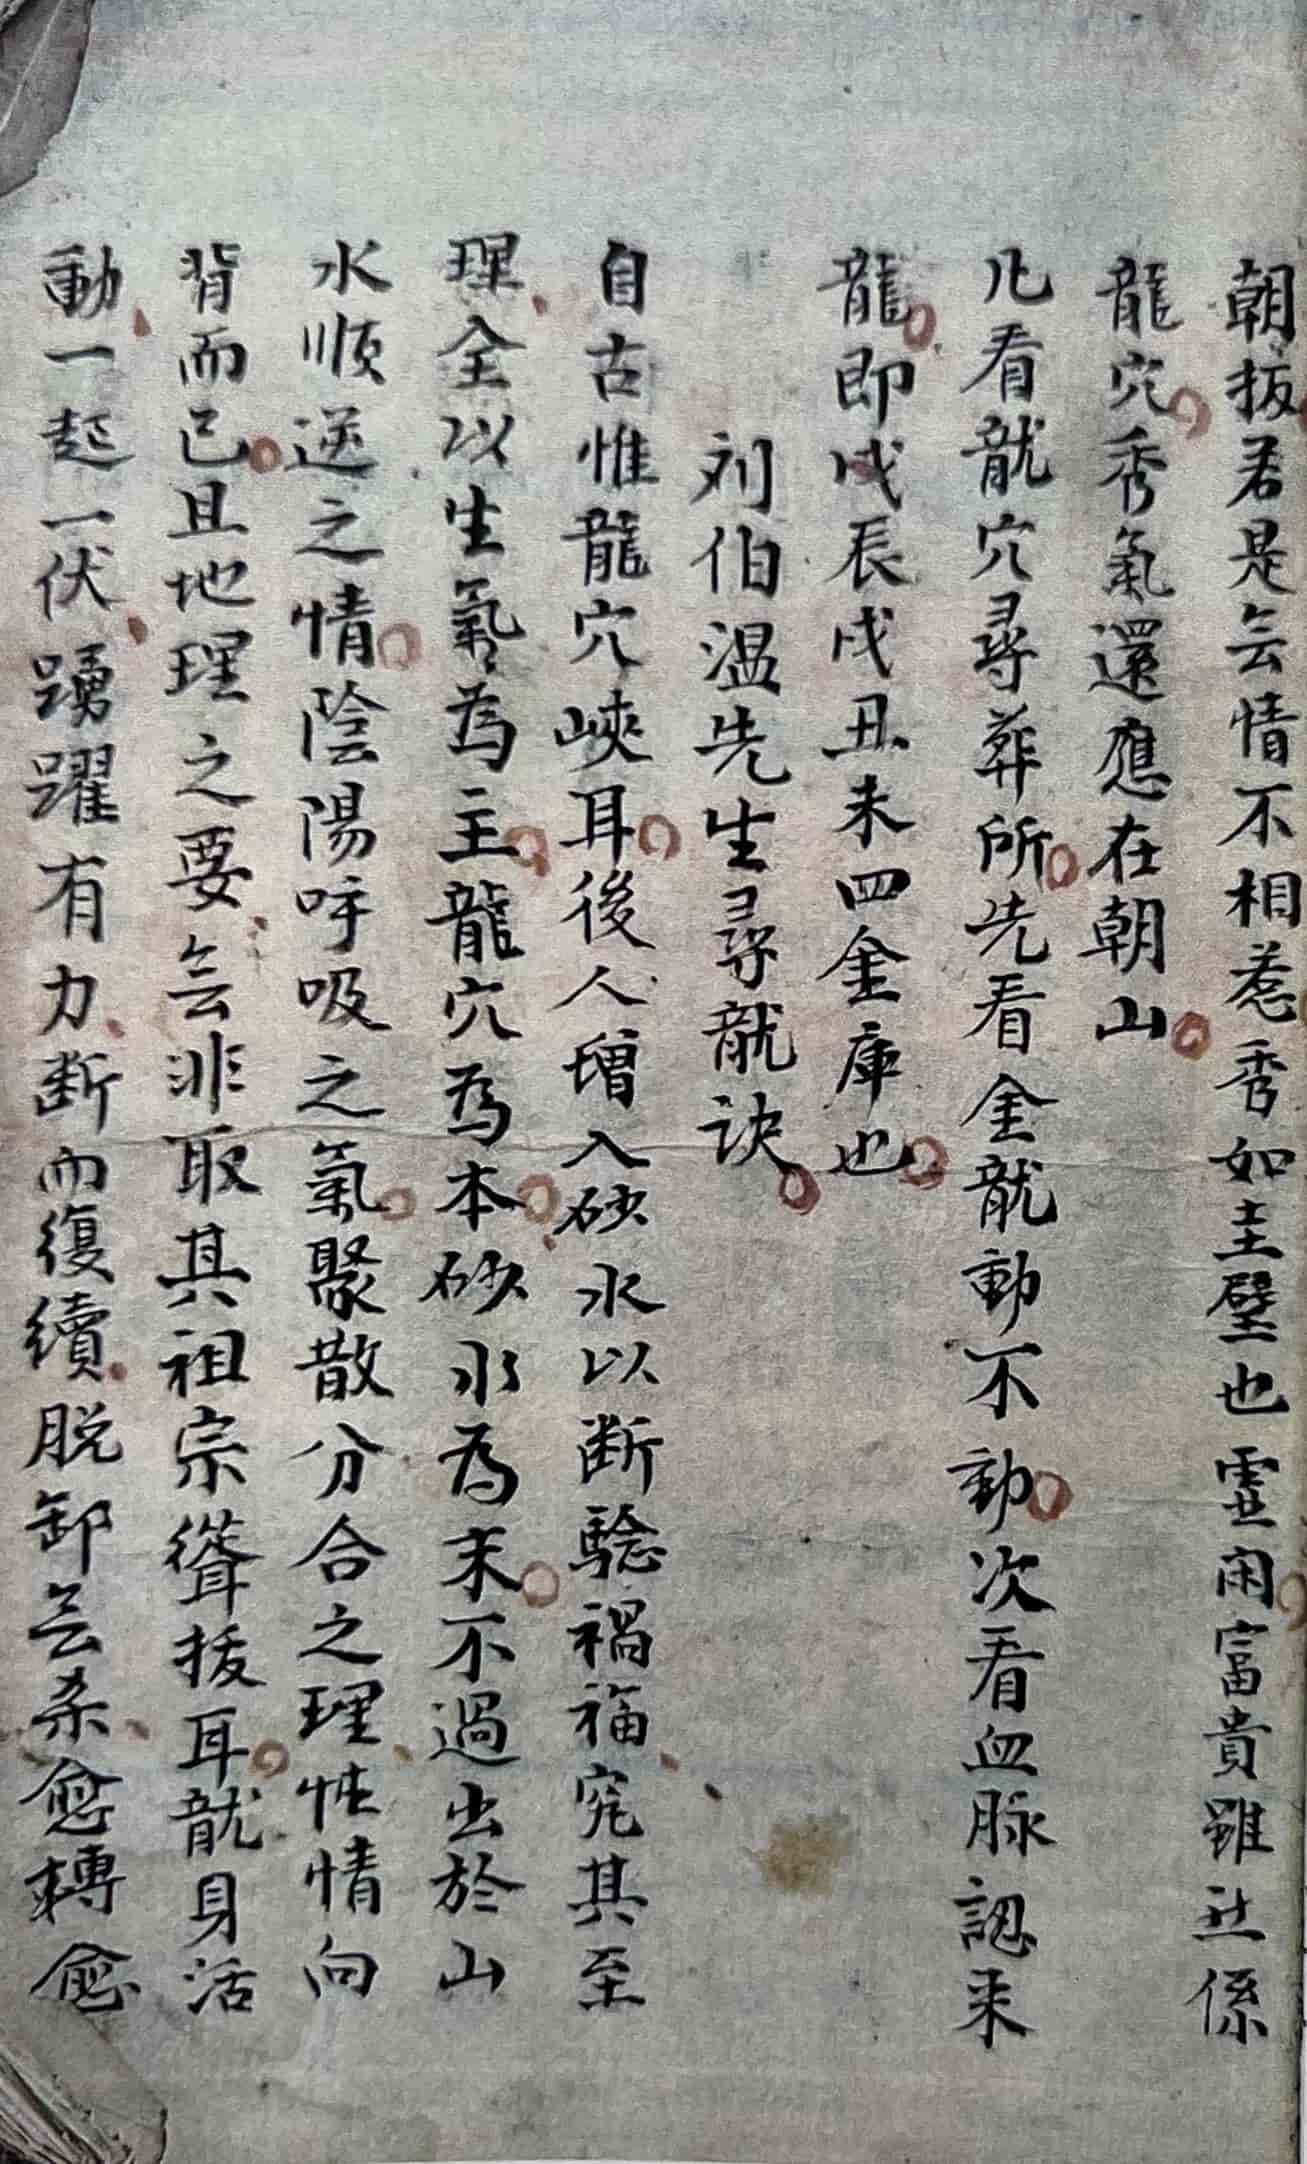 朝拔若是无情不相惹秀如圭璧也灵闲富貴雖出係
龍穴秀氣還應在朝山
凡看龍穴尋葬所先看金龍動不動次看血脉認来
龍即戌辰戌丑未四金庫也
刘伯温先生尋龍訣
自古惟龍穴峽耳後人增入砂水以断騐禍福究其至
理全以生氣為主龍穴為本砂水為末不過出於山
水順逆之情陰陽呼吸之氣聚散分合之理性情向
背而已且地理之要无非取其祖宗聳拔耳龍身活
動一起一伏踴躍有力断而復續脱卸无杀愈轉愈